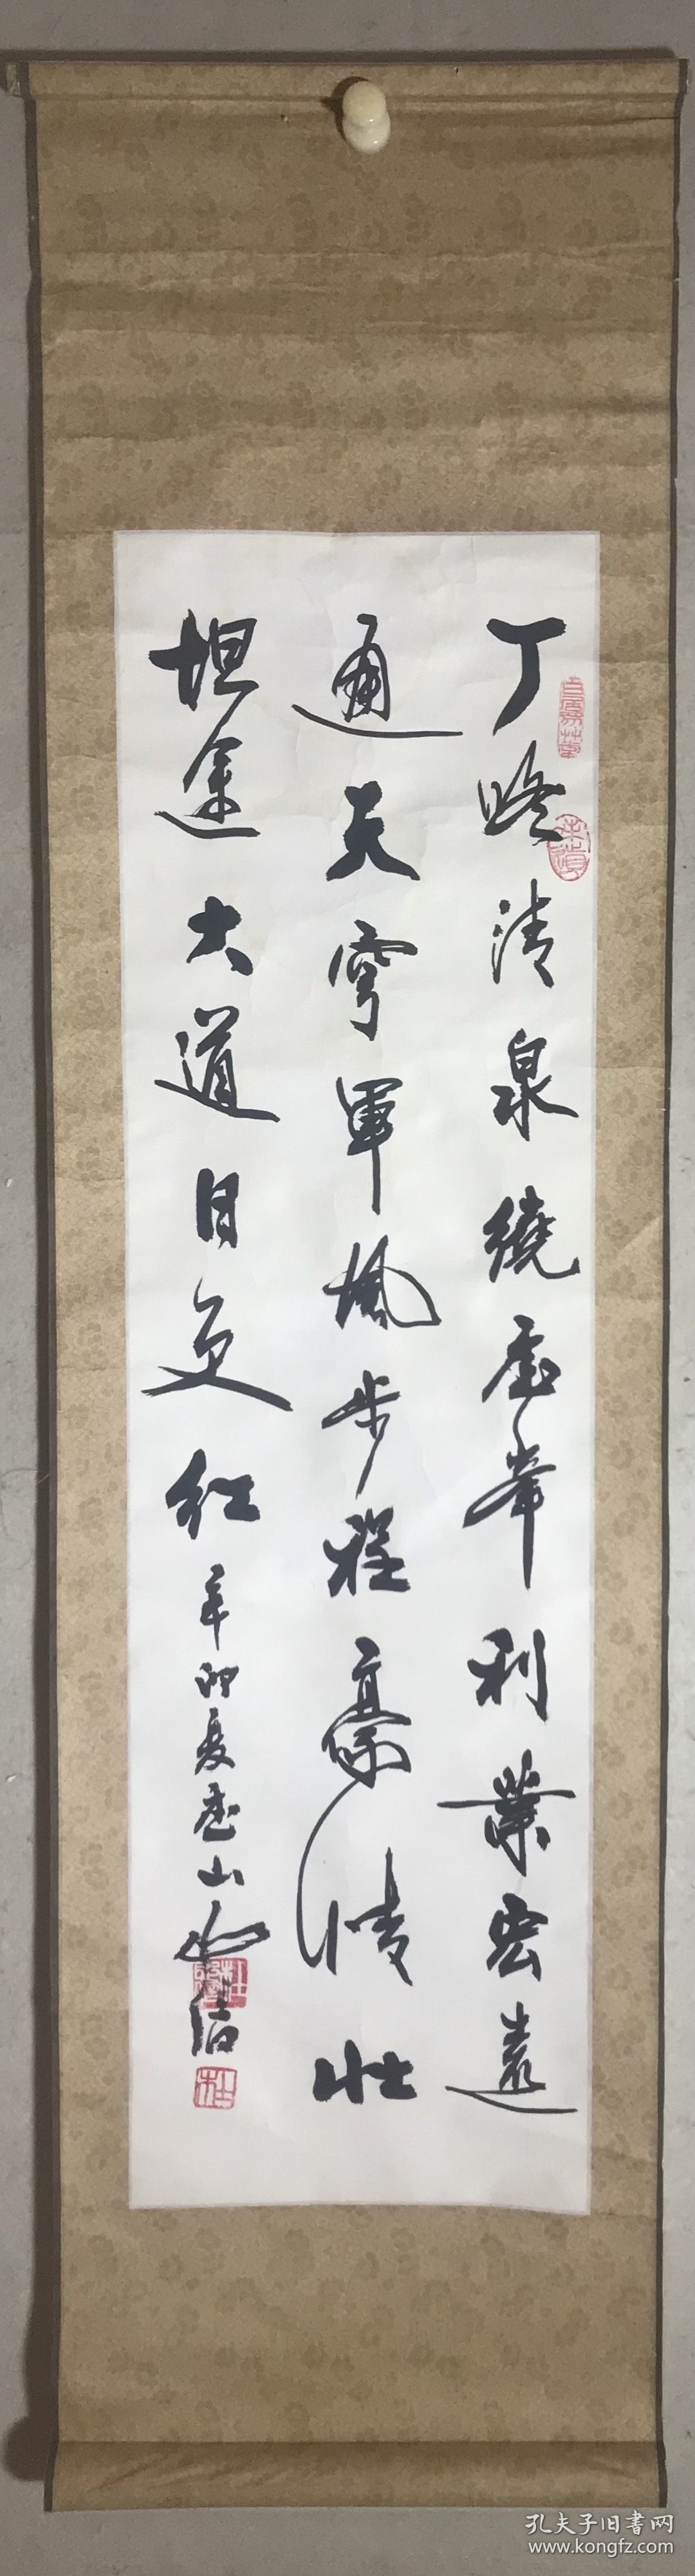 丁咚清泉繞廬峯利業宏遠
通天穹軍風步程豪情壮
坦途大道日更红
辛卯夏廬山
孔夫子旧書网
www.kongfz.com